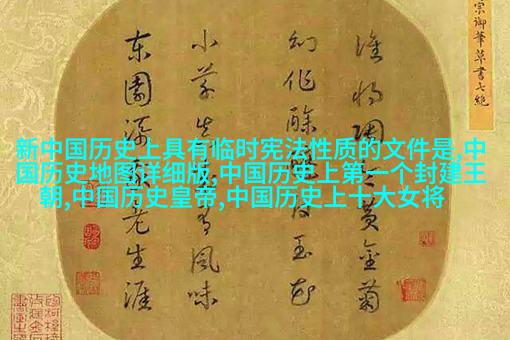 宗御筆草書七絶
誰将陶令黄金菊
幻作酴醾白玉花
小草真成有風味
東園添我老生涯
新中国历史上具有临时宪法性质的文件是,中
国历史地图详细版,中国历史上第一个封建王
朝,中国历史皇帝,中国历史上十大女将